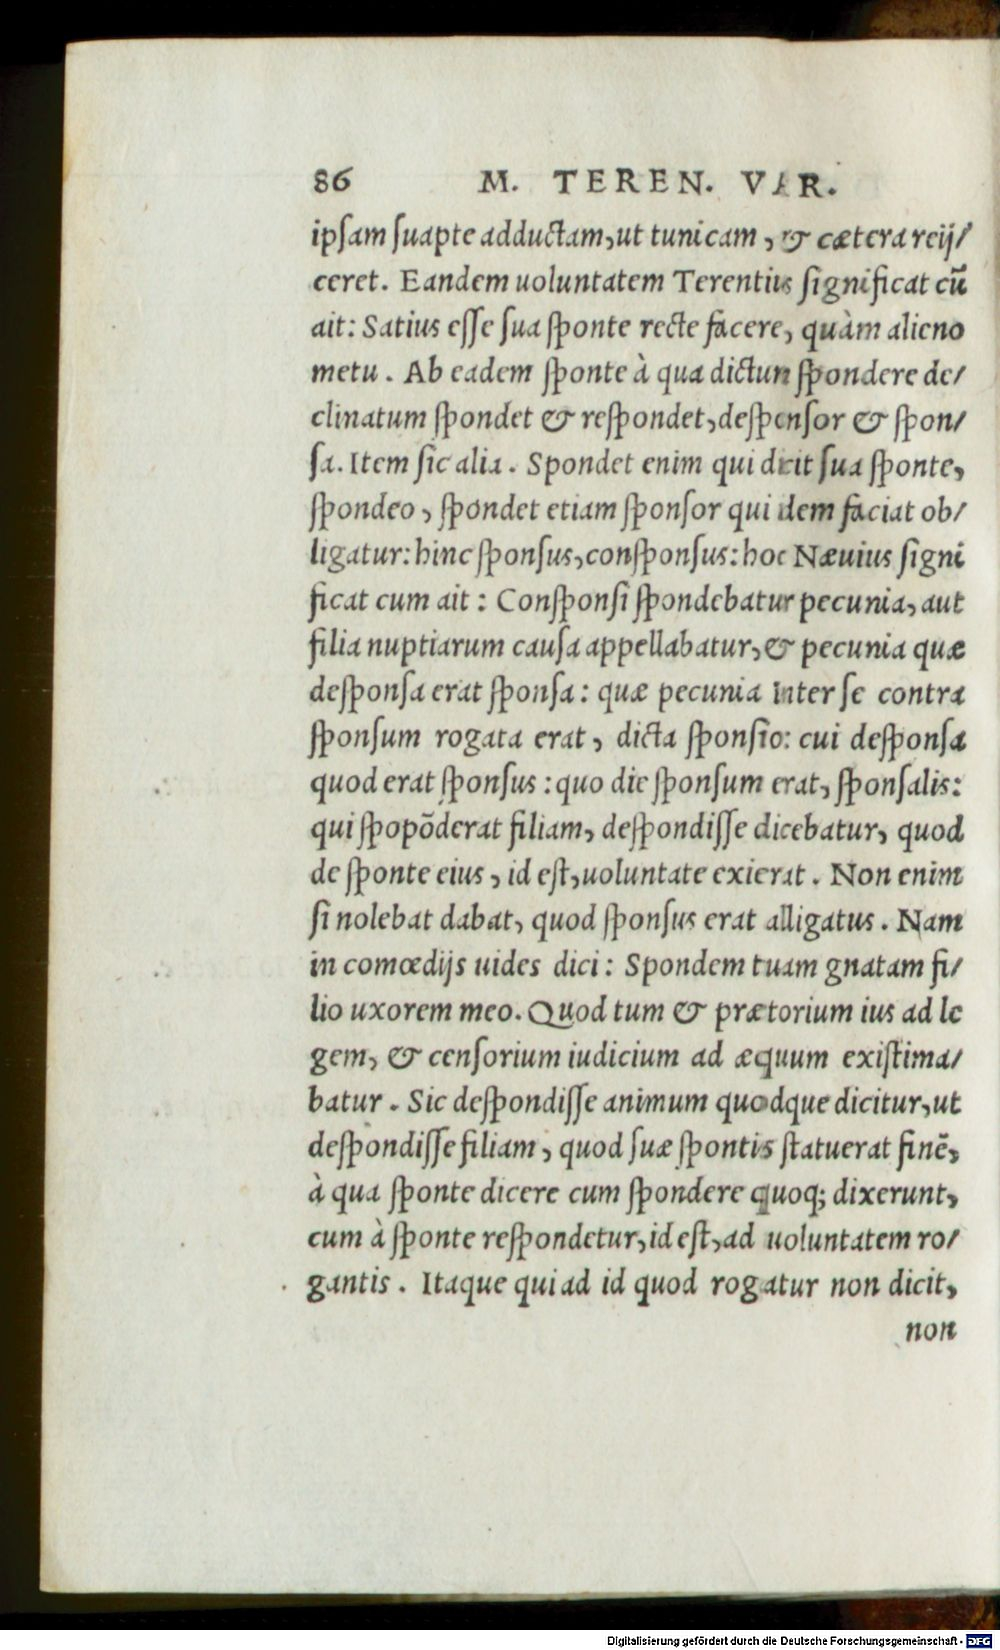 86 M. TEREN. VAR.
ipſam ſuapte adductam, ut tunicam, & cætera reij/
ceret. Eandem uoluntatem Terentius ſignificat cū
ait: Satius eſſe ſua ſponte recte facere, quàm alieno
metu. Ab eadem ſponte à qua dictum ſpondere de/
clinatum ſpondet & reſpondet, deſpenſor & ſpon/
ſa. Item ſic alia. Spondet enim qui dicit ſua ſponte,
ſpondeo, ſpondet etiam ſponſor qui idem faciat ob/
ligatur: hinc ſponſus, conſponſus: hoc Næuius ſigni
ficat cum ait: Conſponſi ſpondebatur pecunia, aut
filia nuptiarum cauſa appellabatur, & pecunia quæ
deſponſa erat ſponſa: quæ pecunia inter ſe contra
ſponſum rogata erat, dicta ſponſio: cui deſponſa
quod erat ſponſus: quo die ſponſum erat, ſponſalis:
qui ſpopōderat filiam, deſpondiſſe dicebatur, quod
de ſponte eius, id eſt, uoluntate exierat. Non enim
ſi nolebat dabat, quod ſponſus erat alligatus. Nam
in comœdijs uides dici: Spondem tuam gnatam fi/
lio uxorem meo. Quod tum & prætorium ius ad le
gem, & cenſorium iudicium ad æquum exiſtima/
batur. Sic deſpondiſſe animum quodque dicitur, ut
deſpondiſſe filiam, quod ſuæ ſpontis ſtatuerat finē,
à qua ſponte dicere cum ſpondere quoq; dixerunt,
cum à ſponte reſpondetur, id eſt, ad uoluntatem ro/
gantis. Itaque qui ad id quod rogatur non dicit,
non
Digitalisierung gefördert durch die Deutsche Forschungsgemeinschaft - DFG